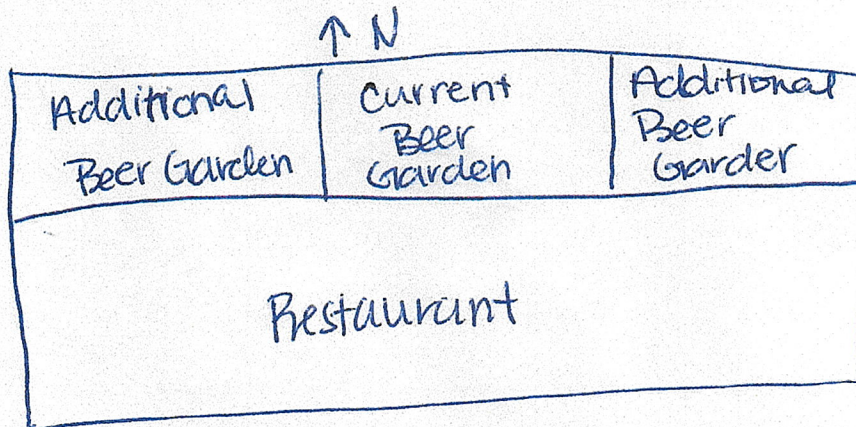 ↑ N
Additional
Beer Garden
Current
Beer
Garden
Additional
Beer
Garder
Restaurant